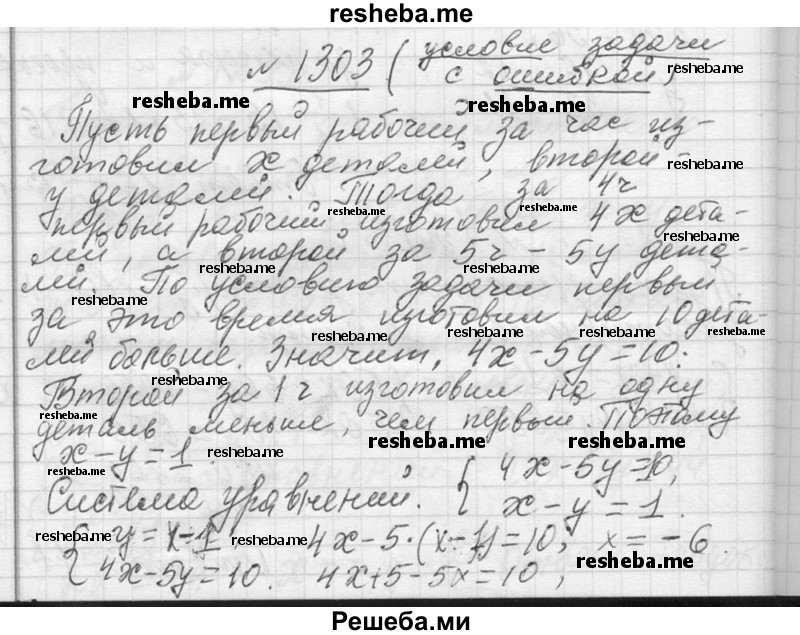 resheba.me
№ 1303 ( условие задачи
с ошибкой) resheba.me
resheba.me resheba.me
Пусть первый рабочий за час из-
готовил x деталей, второй - resheba.me
y деталей. Тогда за 4ч
resheba.me resheba.me
первый рабочий изготовил 4x дета-
resheba.me
лей, а второй за 5ч - 5y дета-
resheba.me resheba.me
лей. По условию задачи первый
resheba.me
за это время изготовил на 10 дета-
resheba.me resheba.me resheba.me resheba.me
лей больше. Значит, 4x-5y=10.
resheba.me
Второй за 1ч изготовил на одну
resheba.me
деталь меньше, чем первый. Поэтому
resheba.me resheba.me
x-y=1. resheba.me
resheba.me
Система уравнений. { 4x-5y=10,
x-y=1.
resheba.me { y=x-1 resheba.me 4x-5·(x-1)=10; x=-6.
4x-5y=10. 4x+5-5x=10; resheba.me
Решеба.ми